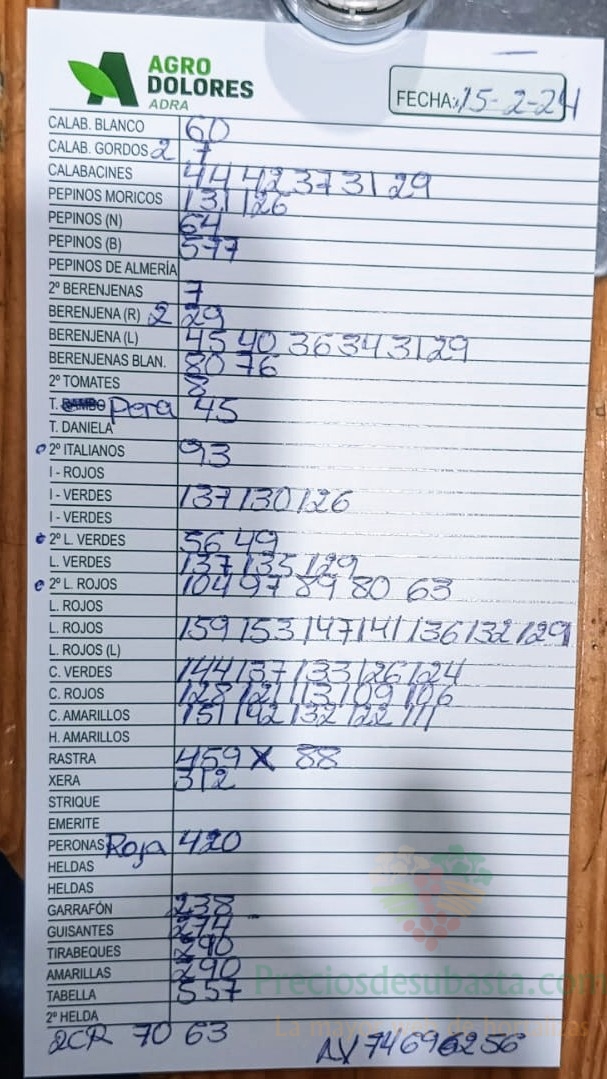 AGRO
DOLORES
ADRA
FECHA: 15-2-24
CALAB. BLANCO 60
CALAB. GORDOS 2 7
CALABACINES 44 42 37 31 29
PEPINOS MORICOS 131 126
PEPINOS (N) 64
PEPINOS (B) 577
PEPINOS DE ALMERÍA
2º BERENJENAS 7
BERENJENA (R) 2 29
BERENJENA (L) 45 40 36 34 31 29
BERENJENAS BLAN. 80 76
2º TOMATES 8
T. Pera 45
T. DANIELA
2º ITALIANOS 93
I - ROJOS
I - VERDES 137 130 126
I - VERDES
2º L. VERDES 56 49
L. VERDES 137 135 129
2º L. ROJOS 104 97 89 80 63
L. ROJOS
L. ROJOS 159 153 147 141 136 132 129
L. ROJOS (L)
C. VERDES 144 137 133 126 124
C. ROJOS 128 121 113 109 106
C. AMARILLOS 151 142 132 122 111
H. AMARILLOS
RASTRA 459 X 88
XERA 312
STRIQUE
EMERITE
PERONAS Roja 420
HELDAS
HELDAS
GARRAFÓN 238
GUISANTES 274
TIRABEQUES 290
AMARILLAS 290
TABELLA 557
2º HELDA
2CR 70 63
Preciosdesubasta.com